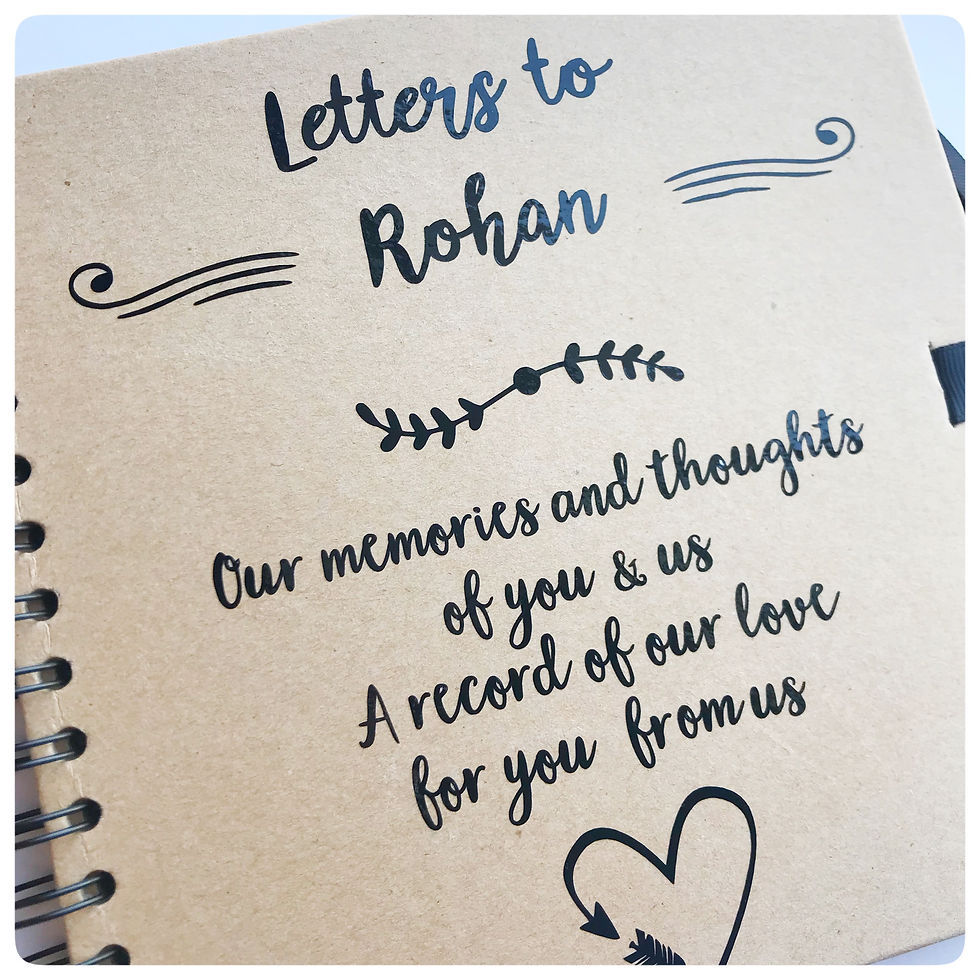 Letters to
Rohan
Our memories and thoughts
of you & us
A record of our love
for you from us